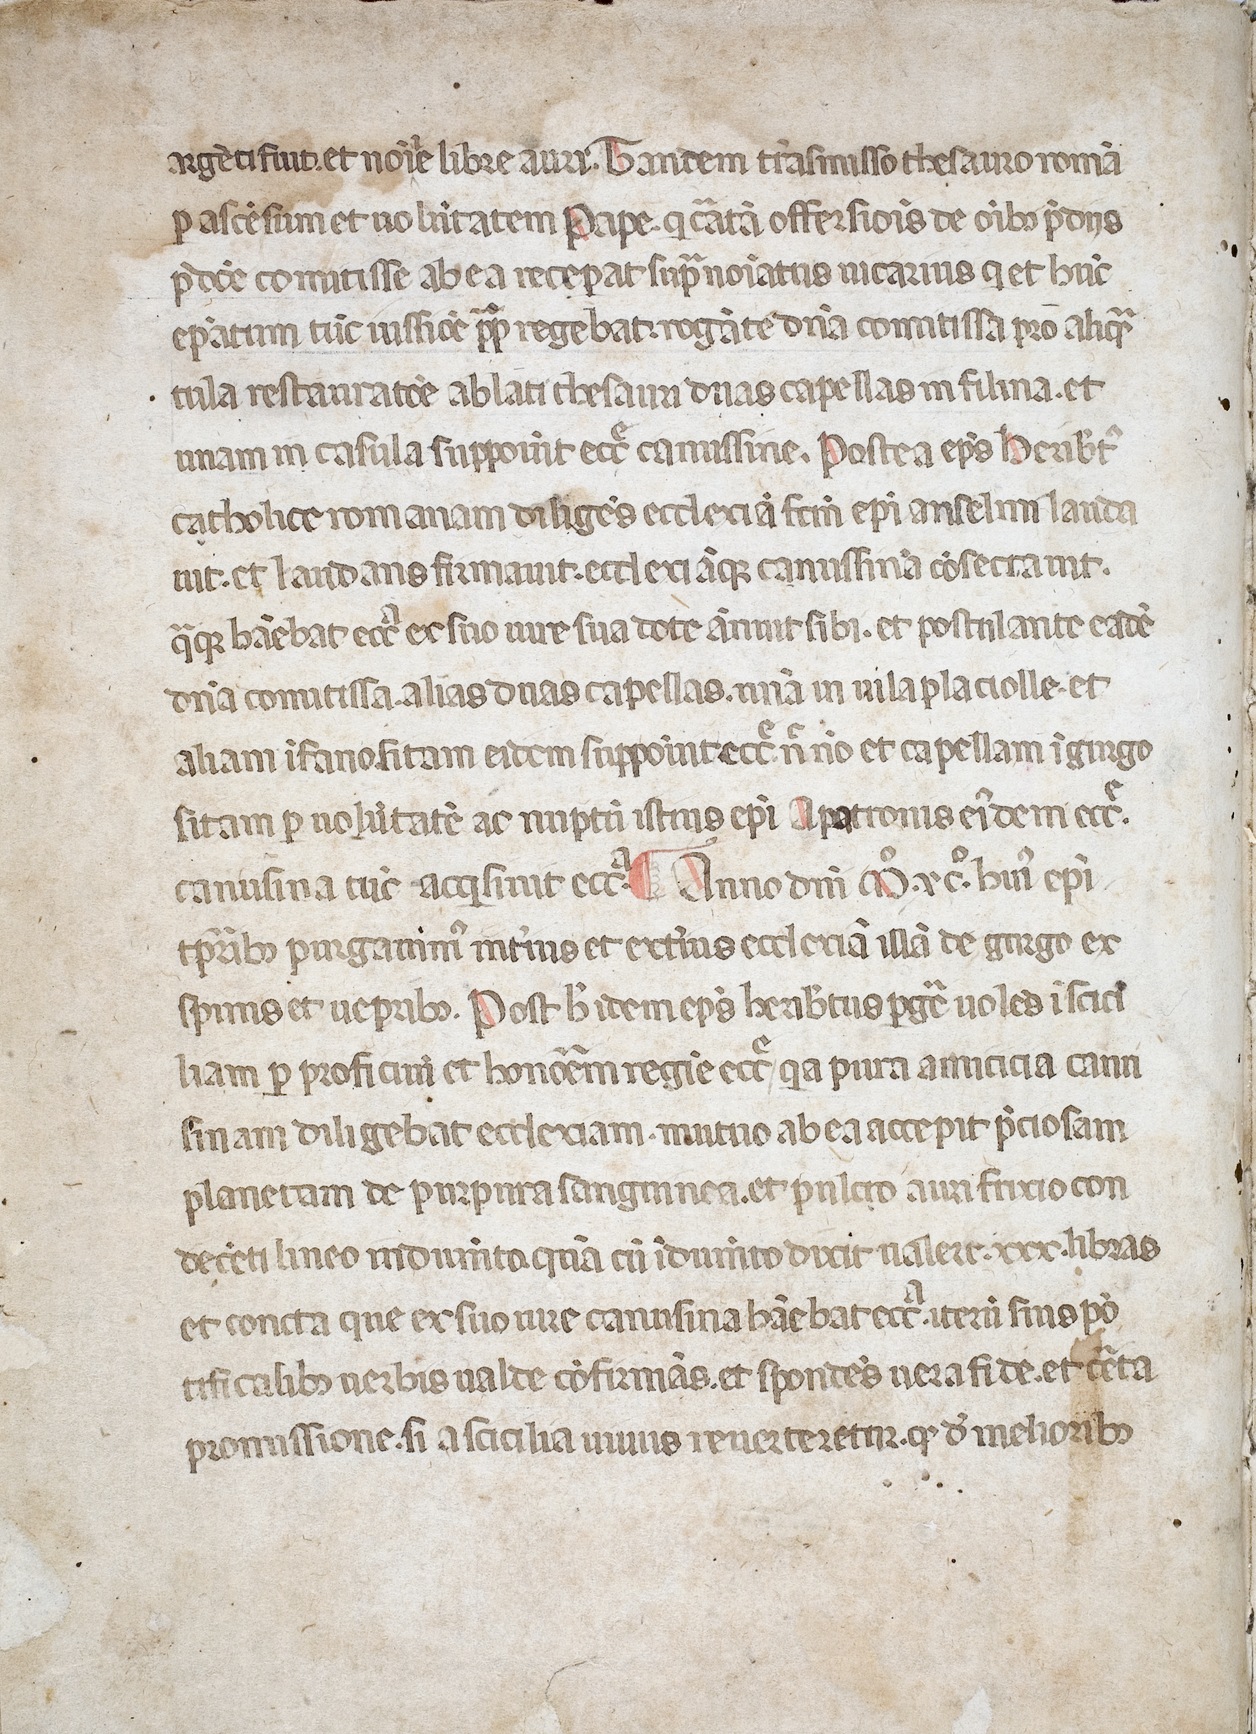 argēti fiut. et noiē libre auri. Tandem trāsmisso thesauro romā
p ascēsum et uolūtatem Pape. q cātā offersiois de oibꝫ p̄dijs
p̄dcē comitisse ab ea recepat sup̄noiatus uicarius q et hūc
ep̄atum tūc iussioē pp̄ regebat. rogāte dn̄a comitissa pro aliqꝫ
tula restauratōe ablati thesauri duas capellas in filina. et
unam in casula supposuit ecc̄e canussine. Postea ep̄s heribt᾽
catholice romanam diligēs ecclexiā fcm̄ ep̄i anselmi lauda
uit. et laudans firmauit. ecclexiāqꝫ canussinā cōsecrauit.
q̄qꝫ hāebat ecc̄a ex suo iure sua dote ānuit sibi. et postulante eadē
dn̄a comitissa. alias duas capellas. unā in uila placiolle. et
aliam ī fano. sitam eidem supposuit ecc̄e. n̄ nō et capellam ī gurgo
sitam p uolūtatē ac nuptū istius ep̄i A patronis eīdem ecc̄e.
canusina tūc acq̄siuit ecc̄a. ¶ Anno dn̄i Mo. xco. hui᾽ ep̄i
tp̄ribꝫ purgauim᾽ int̄ius et ext̄ius ecclexiā illā de gurgo ex
spinis et ueprībꝫ. Post h̄ idem ep̄s heribtus pgē uolēs ī scici
liam p proficuū et honōem regie ecc̄e / q̄a pura amicicia canu
sinam diligebat ecclexiam. mutuo ab ea accepit p̄ciosam
planetam de purpura sanguinea. et pulcro auri frixio con
decēti lineo indumīto. quā cū īdumīto dixit ualere. xxx. libras
et concta que ex suo iure canusina hāebat ecc̄a. iterū suis pō
tificalibꝫ uerbis ualde cōfirmās. et spondēs uera fide. et cēta
promissione. si a scicilia uiuus reuerteretur. qꝫ d᾽ melioribꝫ